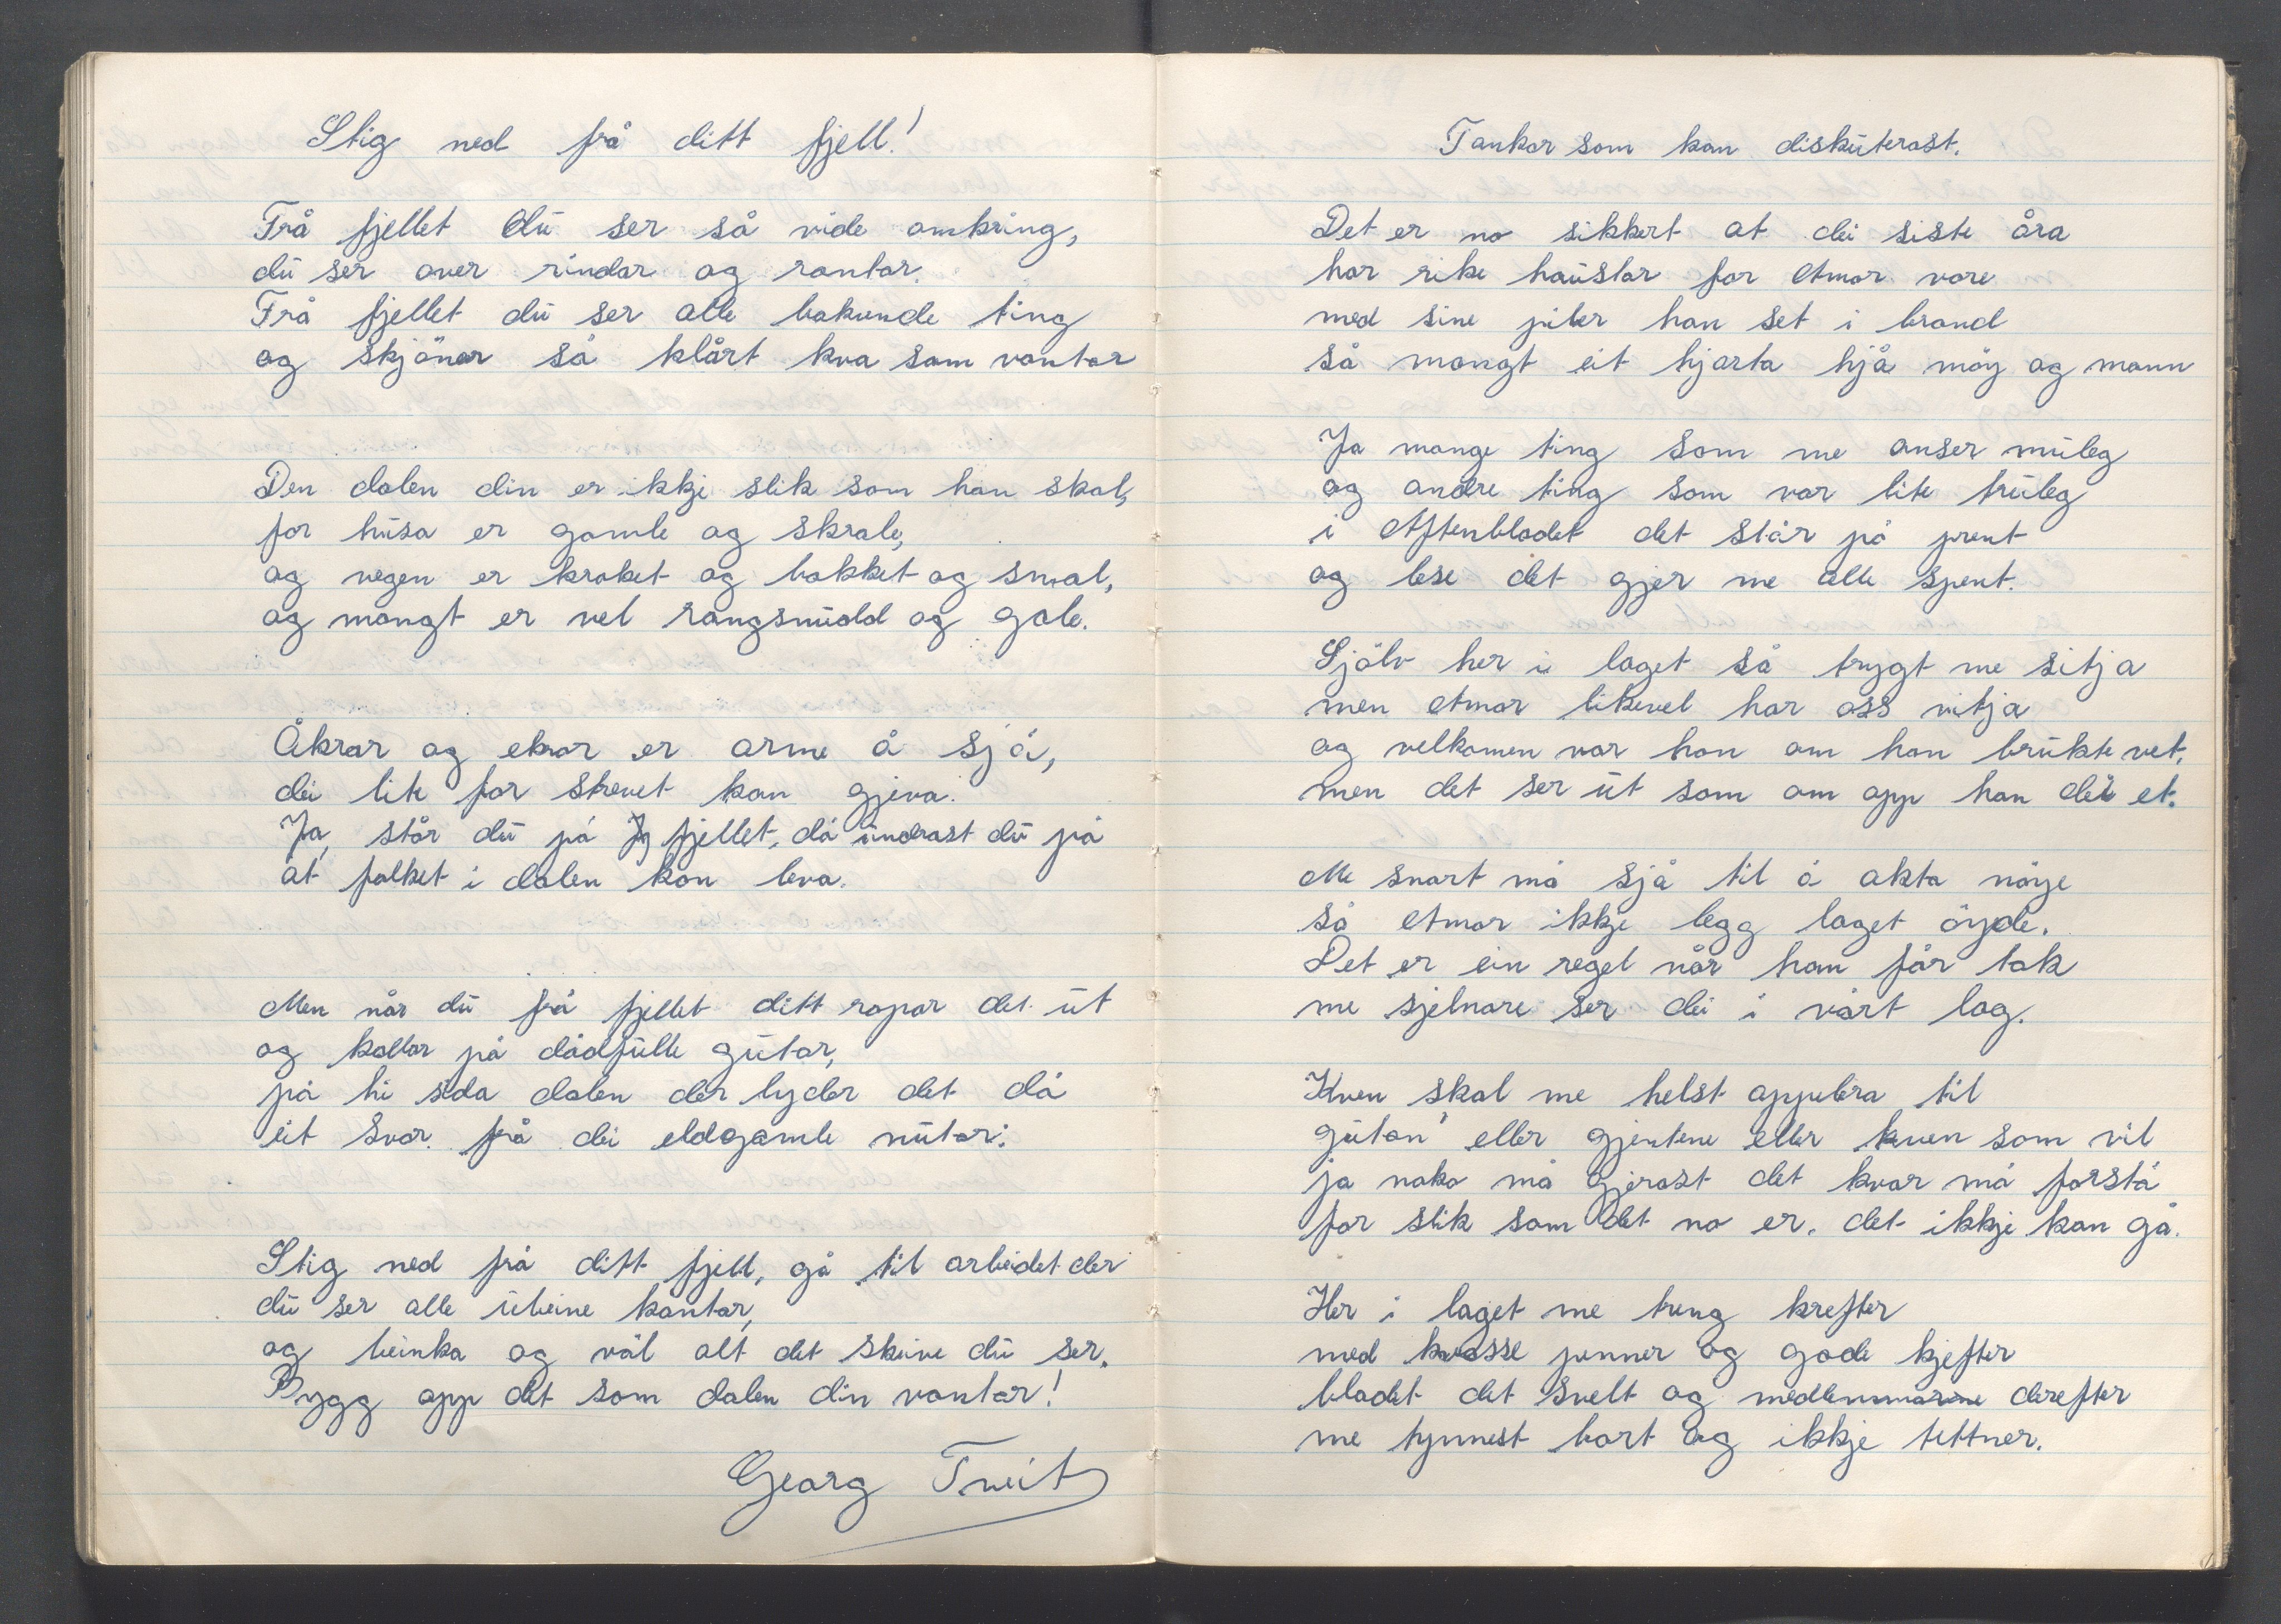 Stig ned frå ditt fjell!
Frå fjellet du ser så vide omkring,
du ser over rindar og rantar.
Frå fjellet du ser alle bakvende ting
og skjönar så klårt kva som vantar
Den dalen din er ikkje slik som han skal,
for husa er gamle og skrale,
og vegen er kroket og bakket og smal,
og mangt er vel rangsnudd og gale.
Åkrar og ekrar er arme å sjå,
dei lite for strevet kan gjeva.
Ja, står du på fjellet, då undrast du på
at folket i dalen kan leva.
Men når du frå fjellet ditt ropar det ut
og kallar på dådfulle gutar,
på hi sida dalen der lyder det då
eit svar frå dei eldgamle nutar:
Stig ned frå ditt fjell, gå til arbeidet der
du ser alle ubeine kantar,
og beinka og völ alt det skeive du ser.
Bygg opp det som dalen din vantar!
Georg Tveit
Tankar som kan diskuterast.
Det er no sikkert at dei siste åra
har rike haustar for Amor vore
med sine piler han set i brand
så mangt eit hjarta hjå möy og mann
Ja mange ting som me anser muleg
og andre ting som var lite truleg
i Aftenbladet det står på prent
og lese det gjer me alle spent.
Sjölv her i laget så trygt me sitja
men Amor likevel har oss vitja
og velkomen var han om han brukte vet,
men det ser ut som om opp han dei et.
Me snart må sjå til å akta nöye
så Amor ikkje legg laget öyde.
Det er ein regel når han får tak
me sjelnare ser dei i vårt lag.
Kven skal me helst appelera til
gutan' eller gjentene eller kven som vil
ja noko må gjerast det kvar må forstå
for slik som det no er, det ikkje kan gå.
Her i laget me treng krefter
med kvasse penner og gode kjefter
bladet det svelt og medlemmarne derefter
me tynnest bort og ikkje tettner.